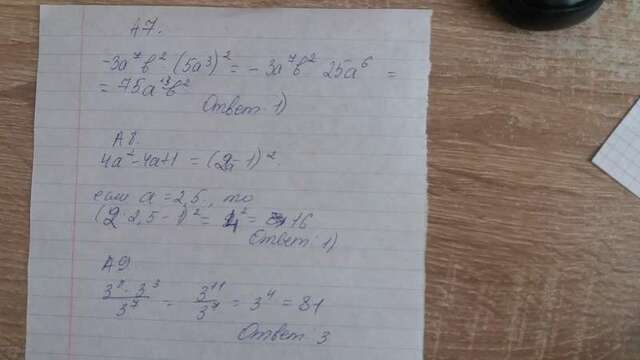 А7.
-3a⁷b² (5a³)² = - 3a⁷b² 25a⁶ =
= 75a¹³b²
Ответ 1)
А8.
4a² - 4a + 1 = (2a - 1)²
если a = 2,5, то
(2·2,5 - 1)² = 4² = 16
Ответ: 1)
А9
3⁸·3³/3⁷ = 3¹¹/3⁷ = 3⁴ = 81
Ответ 3